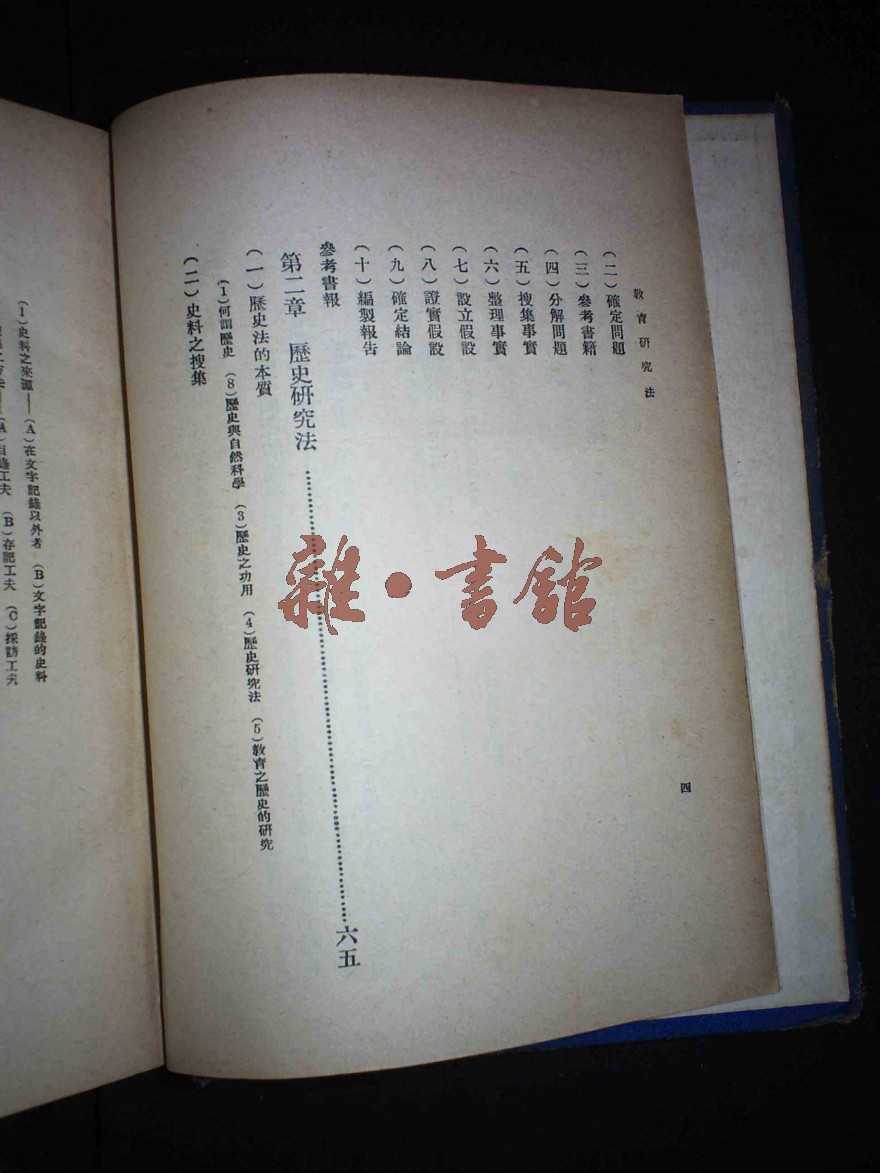 教育研究法
四
(二)確定問題
(三)參考書籍
(四)分解問題
(五)搜集事實
(六)整理事實
(七)設立假設
(八)證實假設
(九)確定結論
(十)編製報告
參考書報
第二章 歷史研究法……六五
(一)歷史法的本質
(1)何謂歷史 (8)歷史與自然科學 (3)歷史之功用 (4)歷史研究法 (5)教育之歷史的研究
(二)史料之搜集
(1)史料之來源—(A)在文字記錄以外者 (B)文字記錄的史料
工夫 (B)存記工夫 (C)採訪工夫
雜·書館